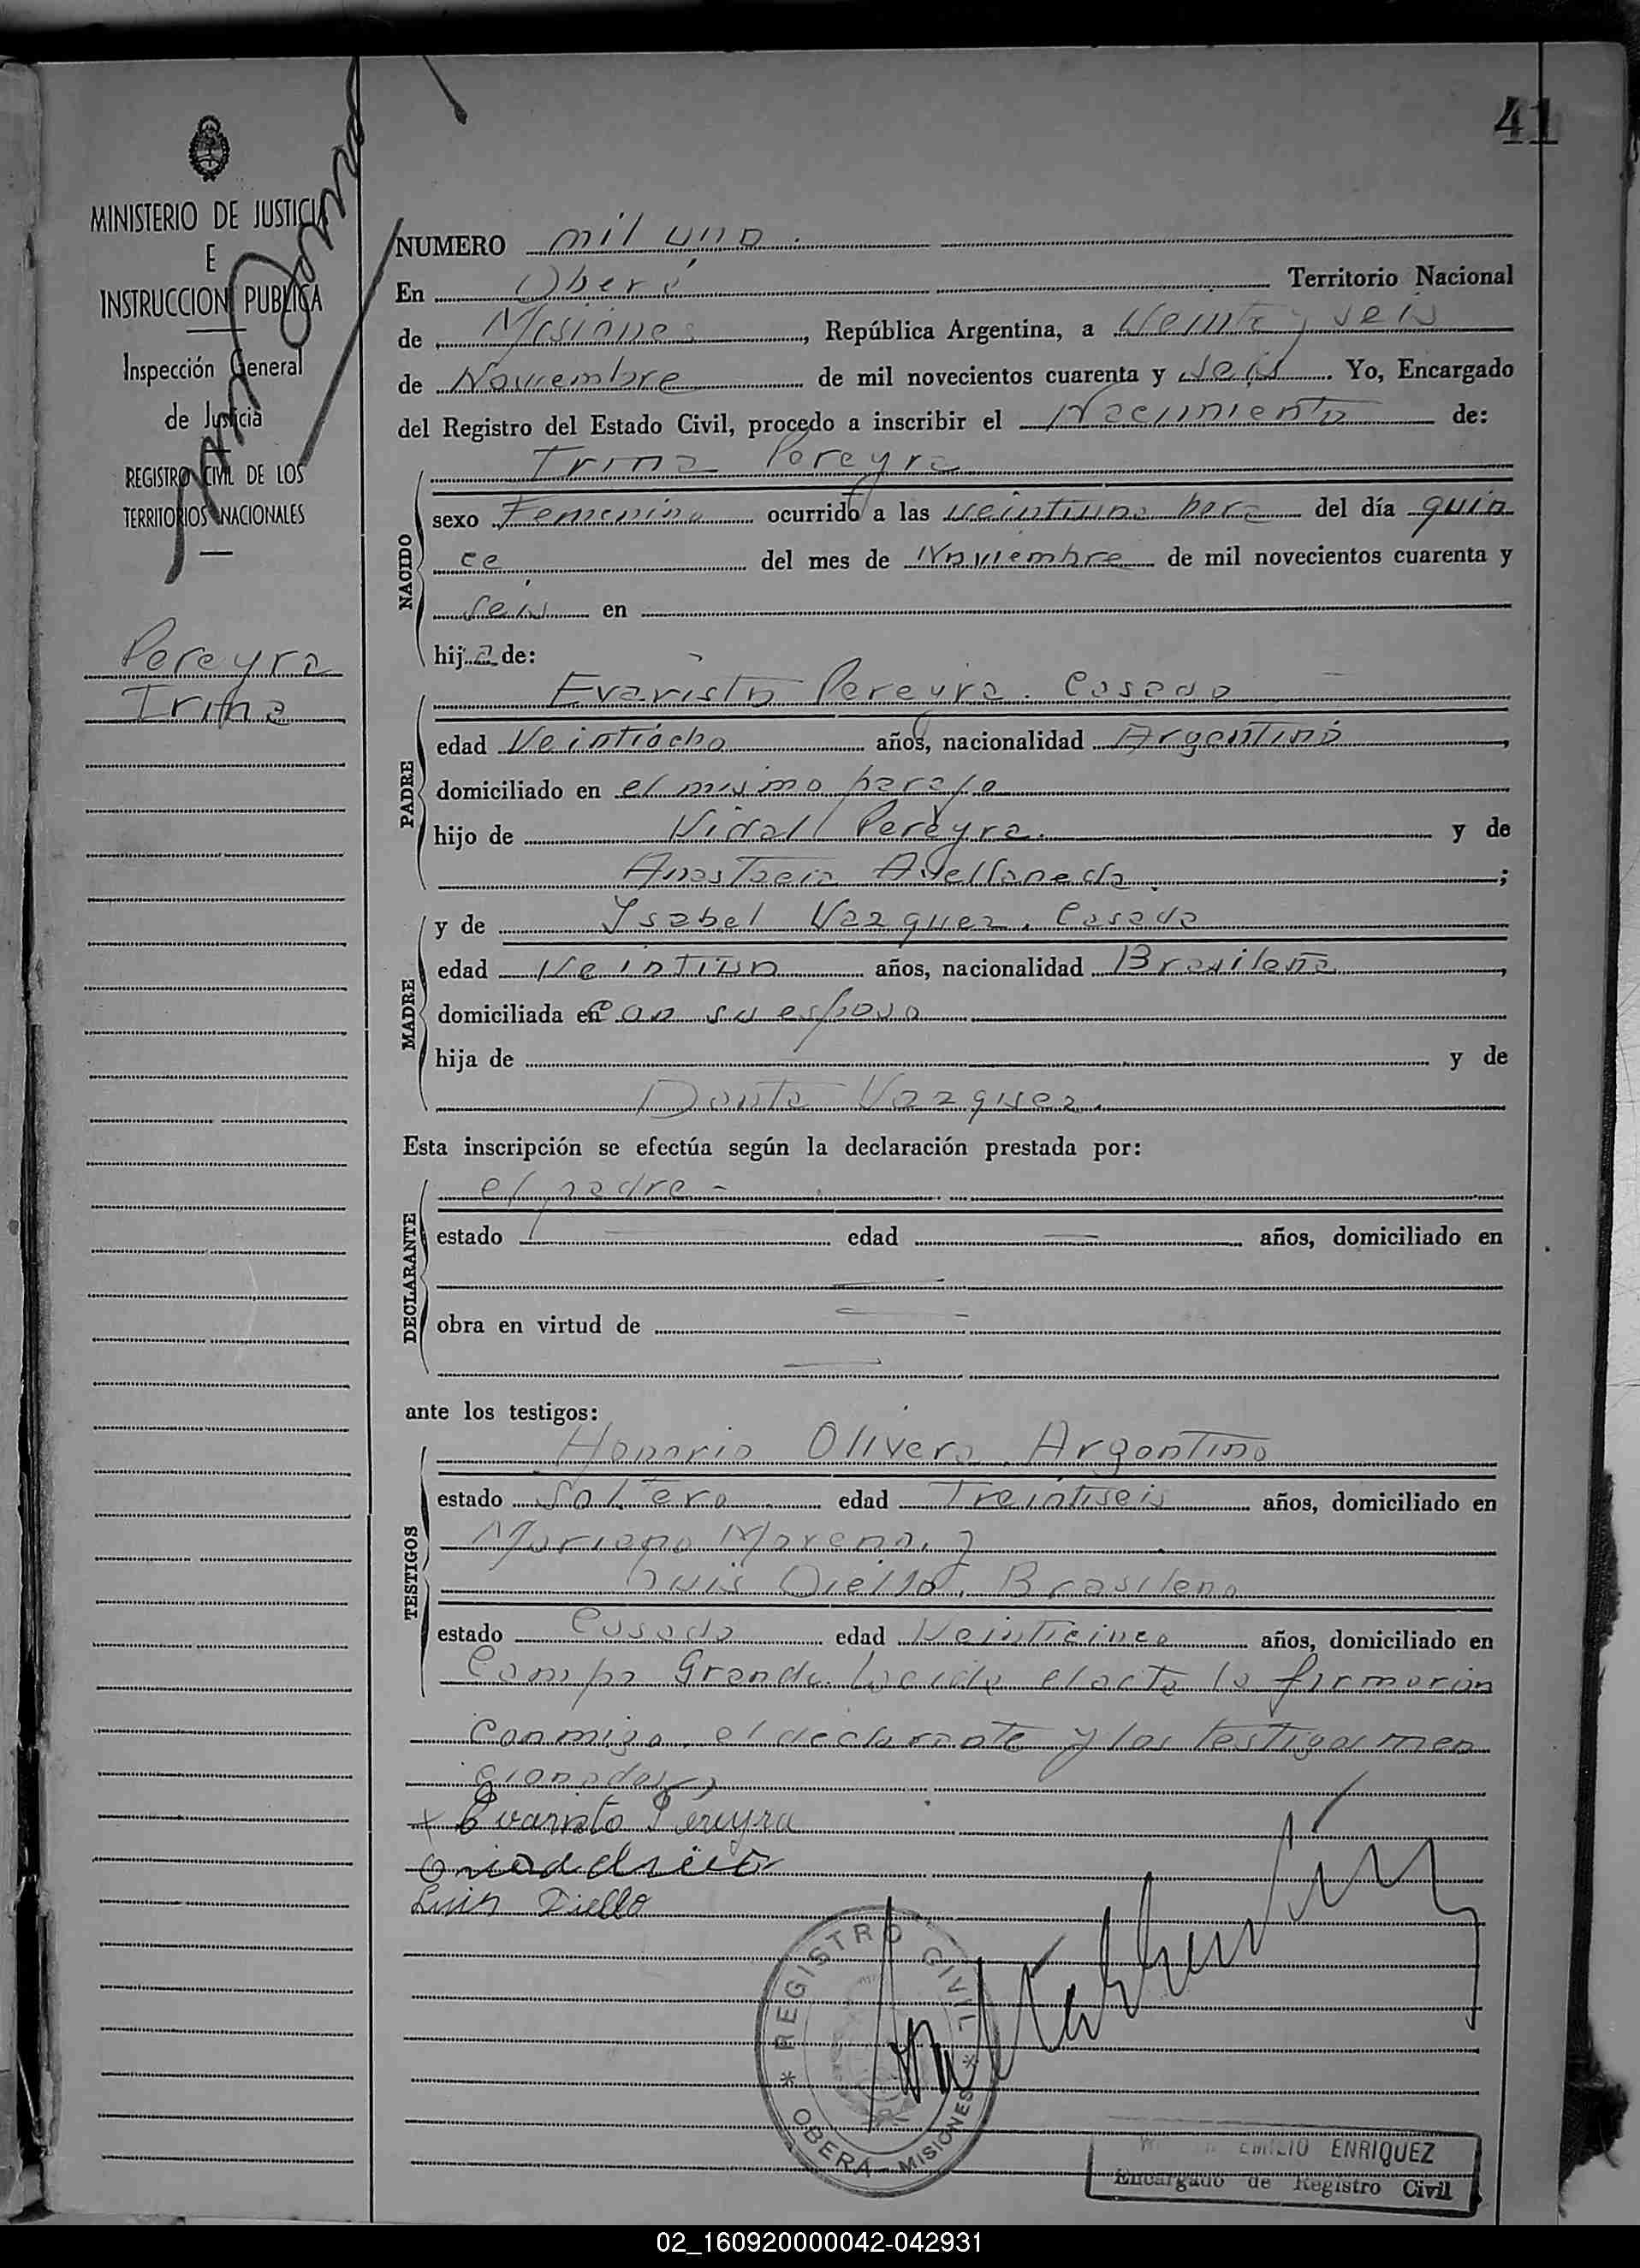 41
MINISTERIO DE JUSTICIA
E
INSTRUCCION PUBLICA
Inspección General
de Justicia
REGISTRO CIVIL DE LOS
TERRITORIOS NACIONALES
Pereyra
Irma
NUMERO mil uno.
En Oberá Territorio Nacional
de Misiones, República Argentina, a Veinte y seis
de Noviembre de mil novecientos cuarenta y seis. Yo, Encargado
del Registro del Estado Civil, procedo a inscribir el Nacimiento de:
NACIDO
Irma Pereyra
sexo Femenino ocurrido a las veintiuna hora del día quin
ce del mes de Noviembre de mil novecientos cuarenta y
seis en
hija de:
PADRE
Evaristo Pereyra. Casado
edad Veintiocho años, nacionalidad Argentino,
domiciliado en el mismo paraje
hijo de Vidal Pereyra. y de
Anastacia Avellaneda.;
MADRE
y de Ysabel Vazquez. Casada
edad Veintiun años, nacionalidad Brasileña,
domiciliada en Con su esposo
hija de y de
Vazquez.
Esta inscripción se efectúa según la declaración prestada por:
DECLARANTE
el padre -
estado — edad — años, domiciliado en
—
obra en virtud de —
—
ante los testigos:
TESTIGOS
Honorio Olivera Argentino
estado Soltero edad Treintiseis años, domiciliado en
Mariano Moreno. y
Luis Diello. Brasileno
estado Casado edad Veinticinco años, domiciliado en
Campo Grande. Leida el acta la firmaron
conmigo, el declarante y los testigos men
cionados
x Evaristo Pereyra
Luis Diello
REGISTRO CIVIL
* OBERA - MISIONES *
EMILIO ENRIQUEZ
Encargado de Registro Civil
02_160920000042-042931